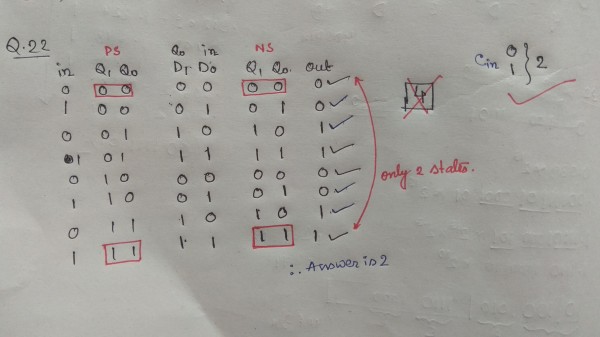 Q.22
PS Q0 in NS
in Q1 Q0 D1 D0 Q1 Q0. Out
0 0 0 0 0 0 0 0 ✓
1 0 0 0 1 0 1 0 ✓
0 0 1 1 0 1 0 1 ✓
1 0 1 1 1 1 1 1 ✓
0 1 0 0 0 0 0 0 ✓
1 1 0 0 1 0 1 0 ✓
0 1 1 1 0 1 0 1 ✓
1 1 1 1 1 1 1 1 ✓
Cin 0 1 } 2
only 2 states.
∴ Answer is 2